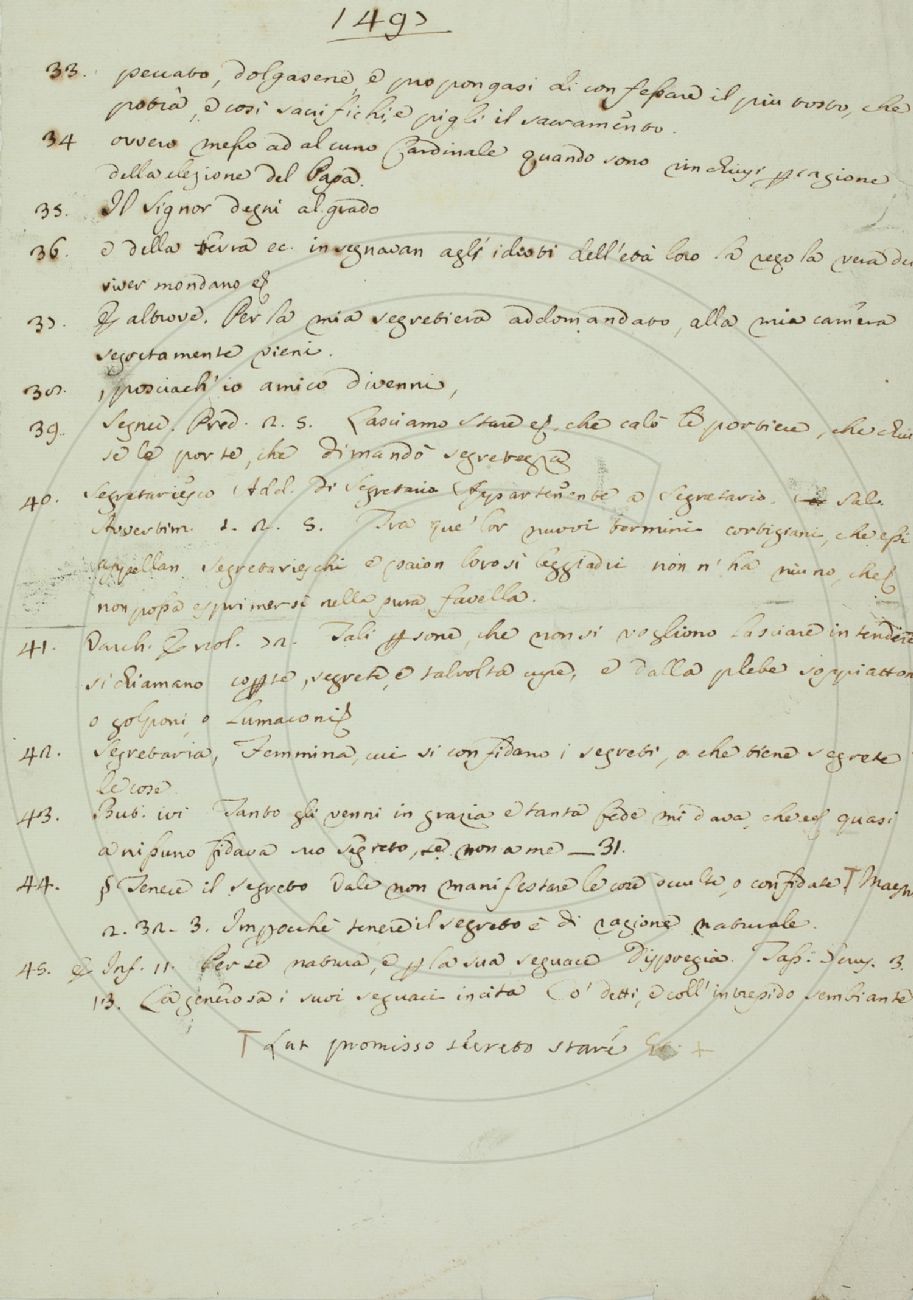 1497
33. peccato, dolgasene, e propongasi di confessare il più tosto, che
potrà, e così sacrifichi, e pigli il sacramento.
34 ovvero messo ad alcuno Cardinale quando sono rinchiusi ꝑ cagione
della elezione del Papa.
35. Il Signor degni al grado
36. e della terra ec. insegnavan agl'idioti dell'età loro la regola vera del
viver mondano
37. E altrove. Per la mia segretiera addomandato, alla mia camera
segretamente vieni.
38. , posciach'io amico divenni,
39. Segner. Pred. 2. 5. Lasciamo stare che calò le portiere, che chiu
se le porte, che dimandò segretezza
40. Segretariesco Add. Di Segretario Appartenente a Segretario. Salv.
Avvertim. 1. 2. 8. Tra que' lor nuovi termini cortigiani, che essi
appellan segretarieschi e paion loro sì leggiadri non n'ha niuno, che
non possa esprimersi nella pura favella.
41. Varch. Ercol. 72. Tali ꝑsone, che non si vogliono lasciare intendere
si chiamano coꝑte, segrete, e talvolta cupe, e dalla plebe soppiattoni
o golponi, o lumaconi
42. Segretaria, Femmina, cui si confidano i segreti, o che tiene segrete
le cose.
43. But. ivi Tanto gli venni in grazia e tanta fede mi dava, che quasi
a nissuno fidava suo segreto, se non a me — 31.
44. § Tenere il segreto Vale non manifestare le cose occulte, o confidate T Maestr
2. 32. 3. Imꝑocchè tenere il segreto è di ragione naturale.
45. E Inf. 11. Per sè natura, e ꝑ la sua seguace Dispregia. Tass. Ger. 3.
13. La generosa i suoi seguaci incita Co' detti, e coll'intrepido sembiante
T Lat promisso secreto stare +